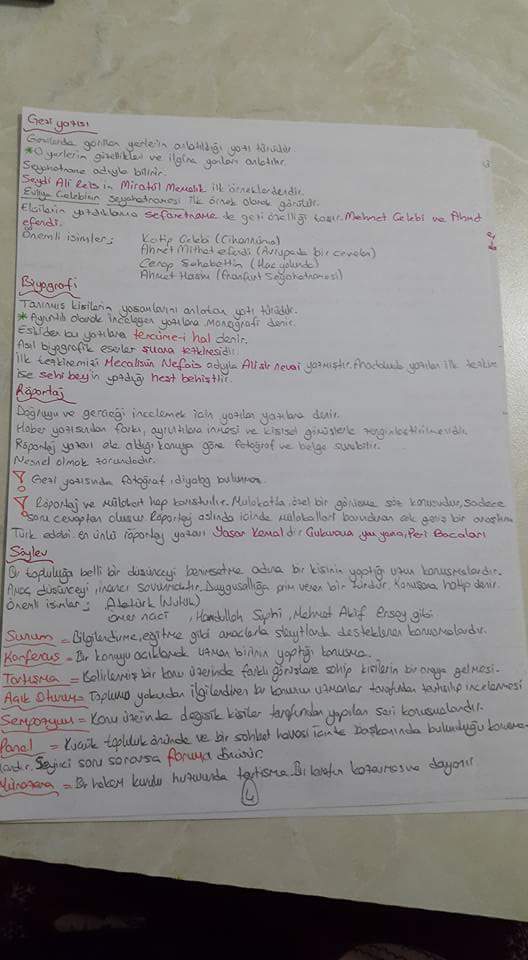 Gezi yazısı
Gezilerde görülen yerlerin anlatıldığı yazı türüdür.
* O yerlerin güzellikleri ve ilginç yanları anlatılır.
Seyahatname adıyla bilinir.
Seydi Ali Reis in Miratül Memalik ilk örneklerdendir.
Evliya Çelebinin seyahatnamesi ilk örnek olarak görülür.
Elçilerin yazdıklarına sefaretname de gezi özelliği taşır. Mehmet Çelebi ve Ahmd
efendi.
Önemli isimler; Katip Çelebi (Cihannüma)
Ahmet Mithat efendi (Avrupada bir cevelan)
Cenap Şahabettin (Hac yolunda)
Ahmet Haşim (Franfurt Seyahatnamesi)
Biyografi
Tanınmış kişilerin yaşamlarını anlatan yazı türüdür.
* Ayrıntılı olarak inceleyen yazılara monografi denir.
Eskiden bu yazılara tercüme-i hal denir.
Asıl biyografik eserler şuara tezkiresidir.
İlk tezkiremizi Mecalisün Nefais adıyla Ali şir nevai yazmıştır. Anadoluda yazılan ilk tezkire
ise sehi beyin yazdığı hest behişttir.
Röportaj
Doğruyu ve gerçeği incelemek için yazılan yazılara denir.
Haber yazısından farkı, ayrıntılara inmesi ve kişisel görüşlerle zenginleştirilmesidir.
Röportaj yazarı ele aldığı konuya göre fotoğraf ve belge sunabilir.
Nesnel olmak zorundadır.
! Gezi yazısında fotoğraf, diyalog bulunmaz.
! Röportaj ve mülakat hep karıştırılır. Mülakatta, özel bir görüşme söz konusudur, sadece
soru cevaptan oluşur. Röportaj aslında içinde mülakatları barındıran çok geniş bir araştırma
Türk edebi. en ünlü röportaj yazarı Yaşar Kemal dir Çukurova yana yana, Peri Bacaları
Söylev
Bir topluluğa belli bir düşünceyi benimsetme adına bir kişinin yaptığı uzun konuşmalardır.
Amaç düşünceyi, inancı savunmaktır. Duygusallığa prim veren bir türdür. Konuşana hatip denir.
Önemli isimler; Atatürk (Nutuk)
Ömer naci, Hamdullah Suphi, Mehmet Akif Ersoy gibi
Sunum = Bilgilendirme, eğitme gibi amaçlarla slaytlarla desteklenen konuşmalardır.
Konferans = Bir konuyu açıklamak uzman birinin yaptığı konuşma.
Tartışma = Belirlenmiş bir konu üzerinde farklı görüşlere sahip kişilerin bir araya gelmesi.
Açık Oturum = Toplumu yakından ilgilendiren bir konunun uzmanlar tarafından tartışılıp incelemesi
Sempozyum = Konu üzerinde değişik kişiler tarafından yapılan seri konuşmalardır.
Panel = Küçük topluluk önünde ve bir sohbet havası içinde başkanında bulunduğu konuşma-
lardır. Seyirci soru sorarsa foruma dönüşür.
Münazara = Bir hakem kurulu huzurunda tartışma. Bir tarafın kazanmasına dayanır
4